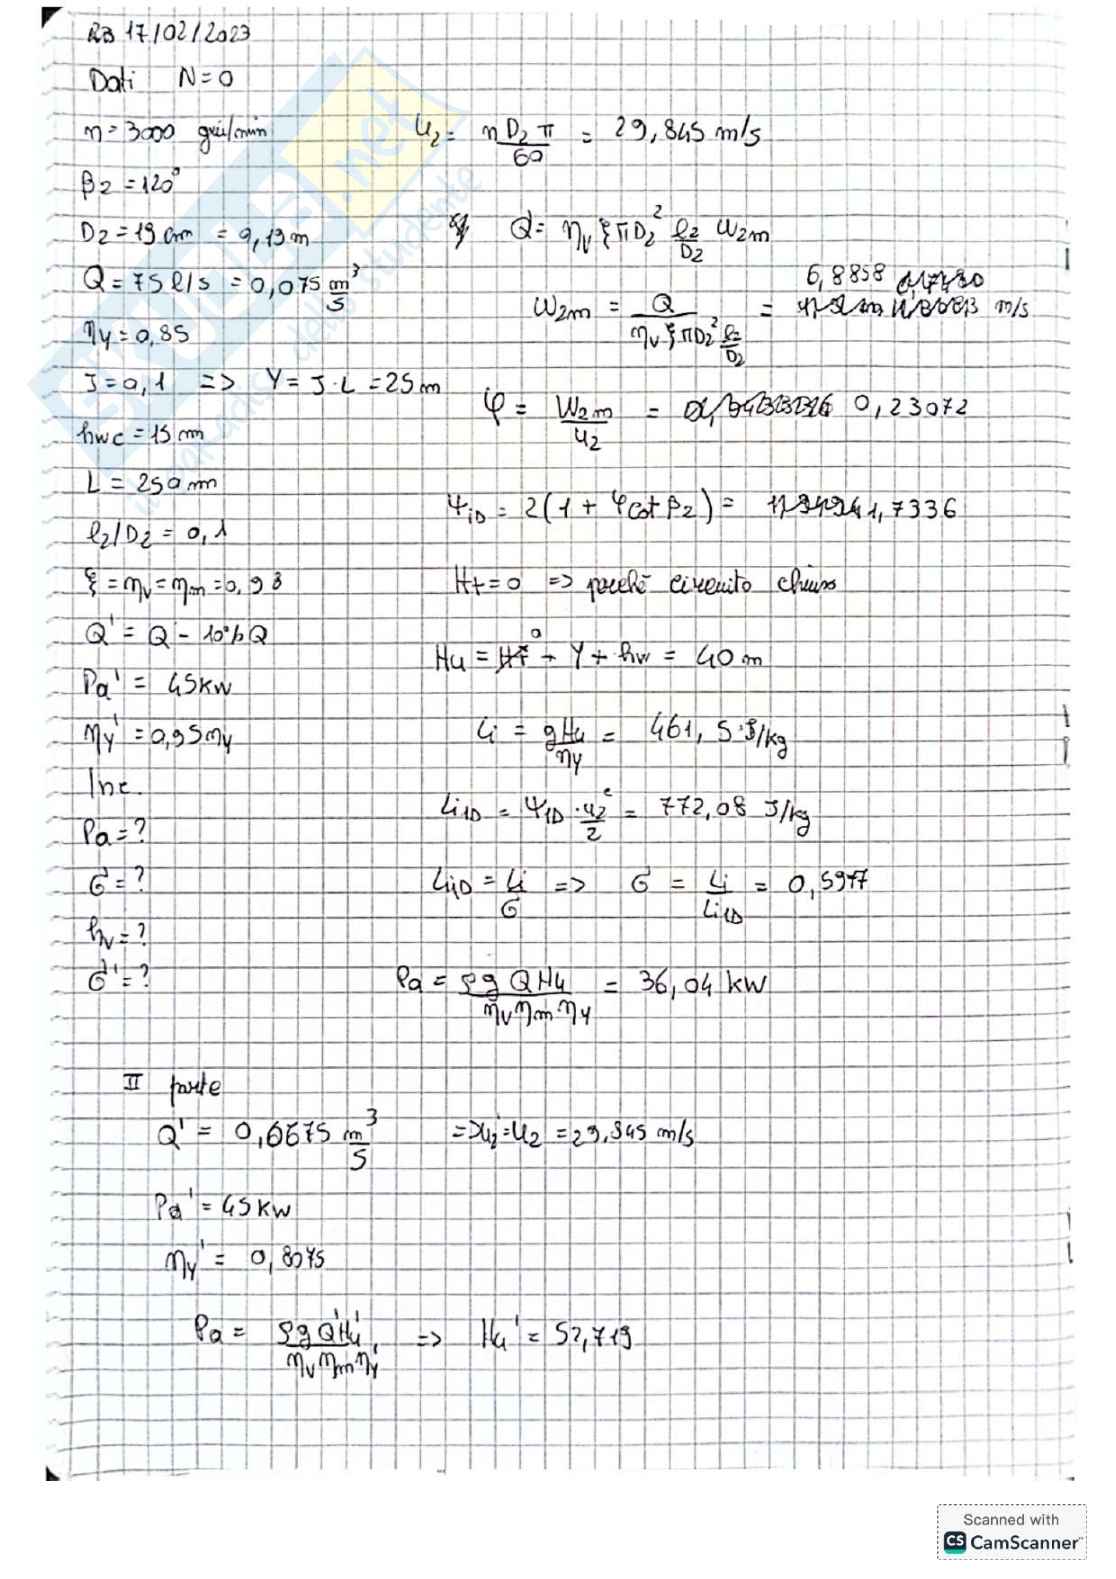 RB 17/02/2023
Dati N=0
n=3000 giri/min
β2=120°
D2=19 cm = 0,19 m
Q=75 l/s = 0,075 m³/s
ηy=0,85
J=0,1 => Y=J·L=25m
hwc=15 m
L=250 m
l2/D2=0,1
ξ=ηv=ηm=0,98
Q'=Q-10%Q
Pa'=45kW
ηy'=0,95ηy
Inc.
Pa=?
σ=?
hv=?
σ'=?
u2= nD2π/60 = 29,845 m/s
Q= ηv ξπD2² l2/D2 w2m
w2m = Q/(ηv ξπD2² l2/D2) = 6,8858 m/s
φ = w2m/u2 = 0,23072
ψiD = 2(1+φcotβ2) = 1,7336
Ht=0 => perché circuito chiuso
Hu = Ht + Y + hw = 40 m
0
Li = gHu/ηy = 461,5 J/kg
LiiD = ψiD·u2²/2 = 772,08 J/kg
LiiD = Li/σ => σ = Li/LiiD = 0,5977
Pa = ρgQHu/(ηvηmηy) = 36,04 kW
II parte
Q' = 0,6675 m³/s => u2'=u2=29,845 m/s
Pa'=45kW
ηy' = 0,8075
Pa = ρgQ'Hu'/(ηvηmηy') => Hu' = 52,719
Scanned with
CS CamScanner